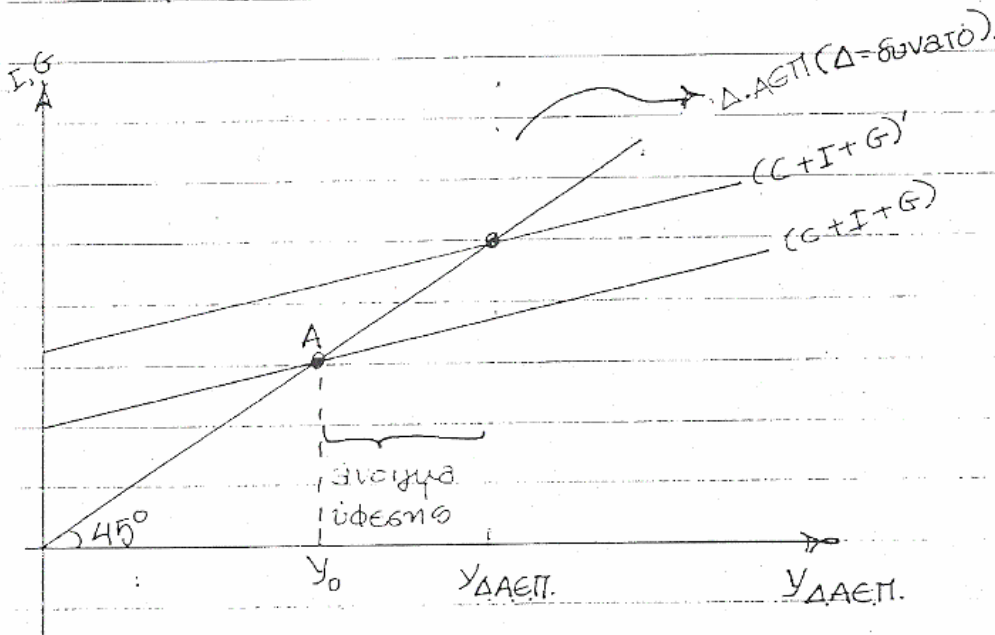 I, G
Δ.ΑΕΠ (Δ=δυνατό).
(C+I+G)'
(C+I+G)
A
ύφεσης
45°
Y₀
YΔΑΕΠ.
YΔΑΕΠ.